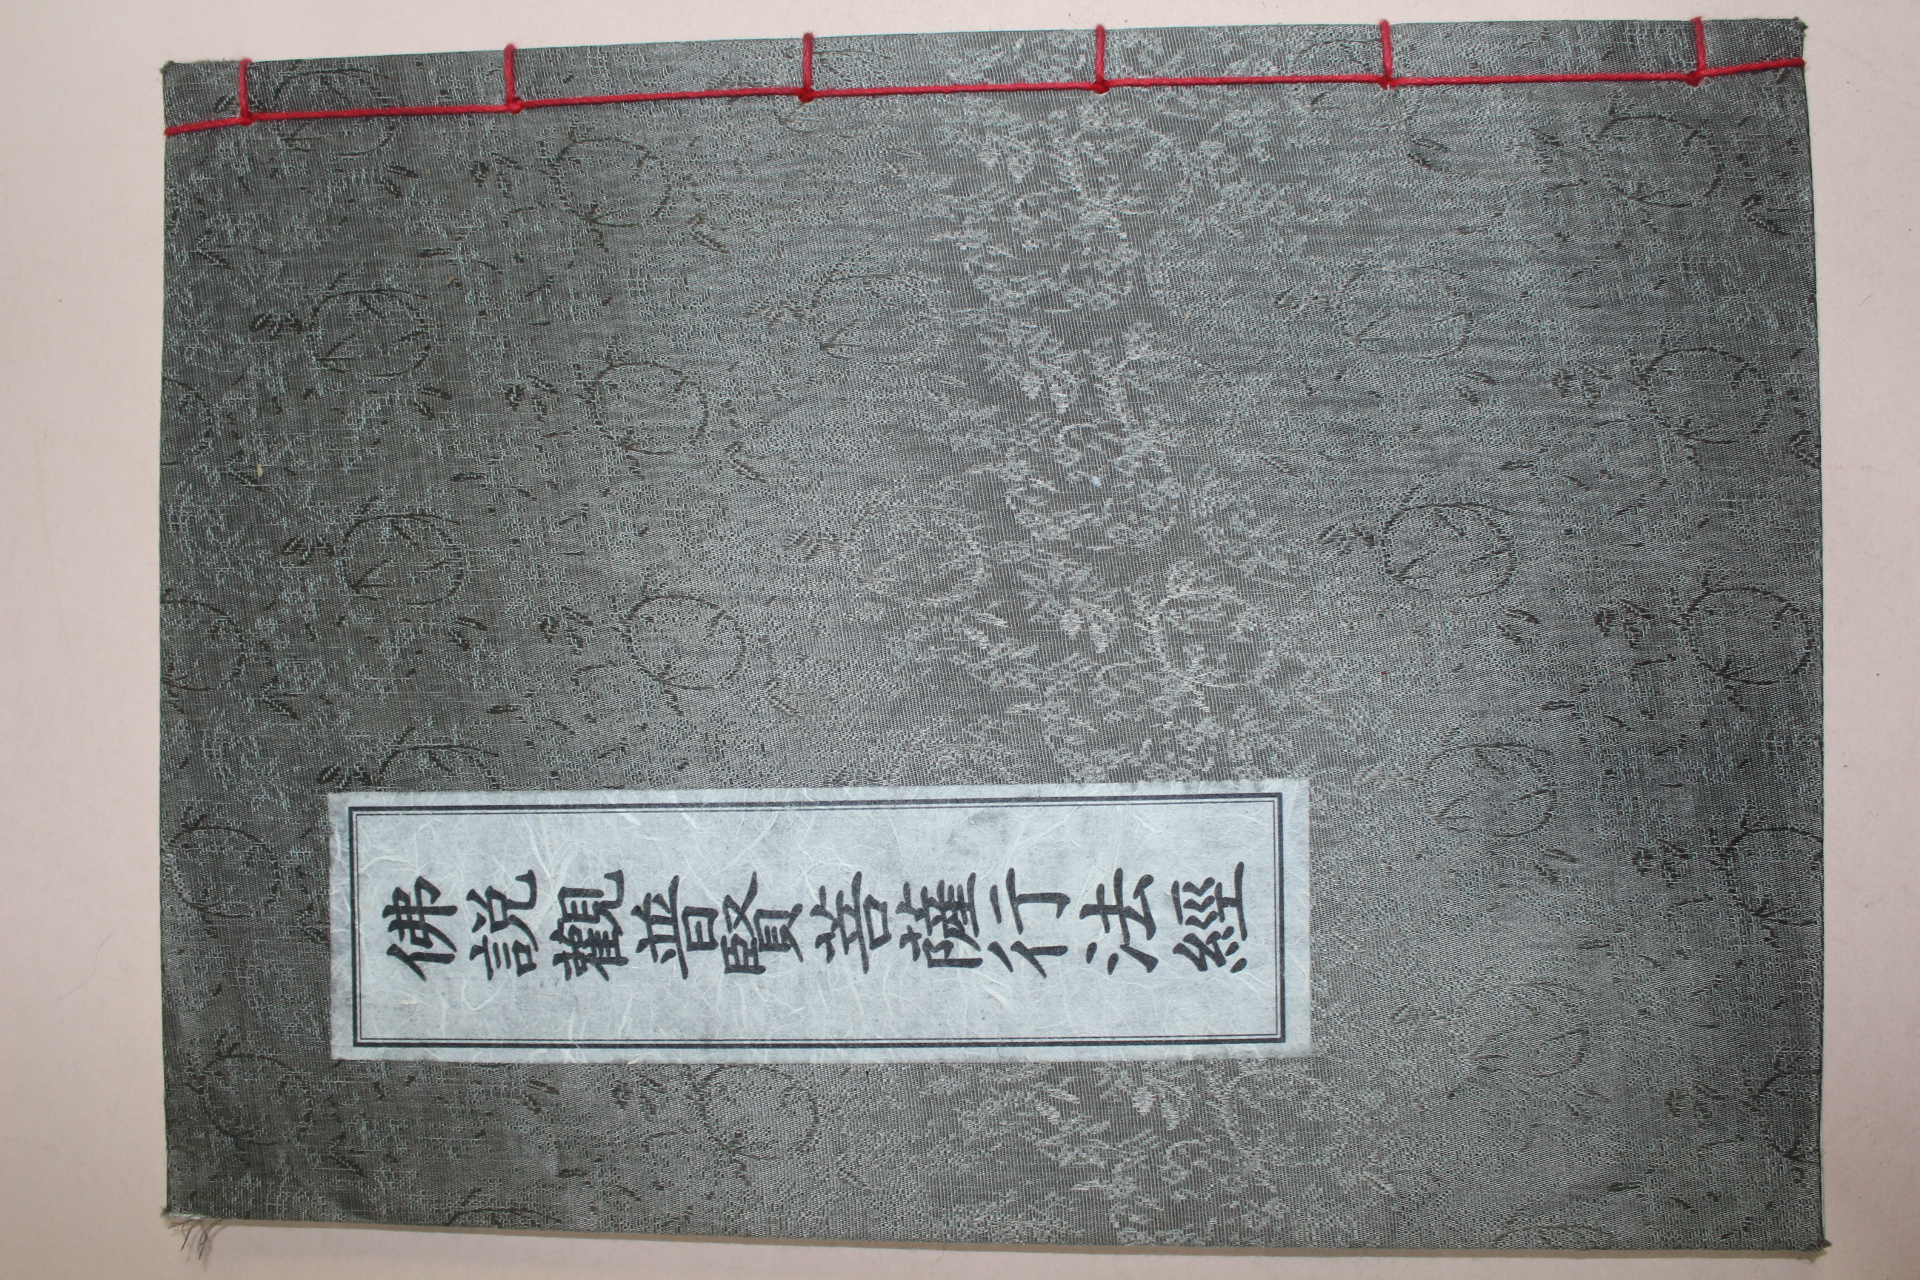 佛說觀普賢菩薩行法經